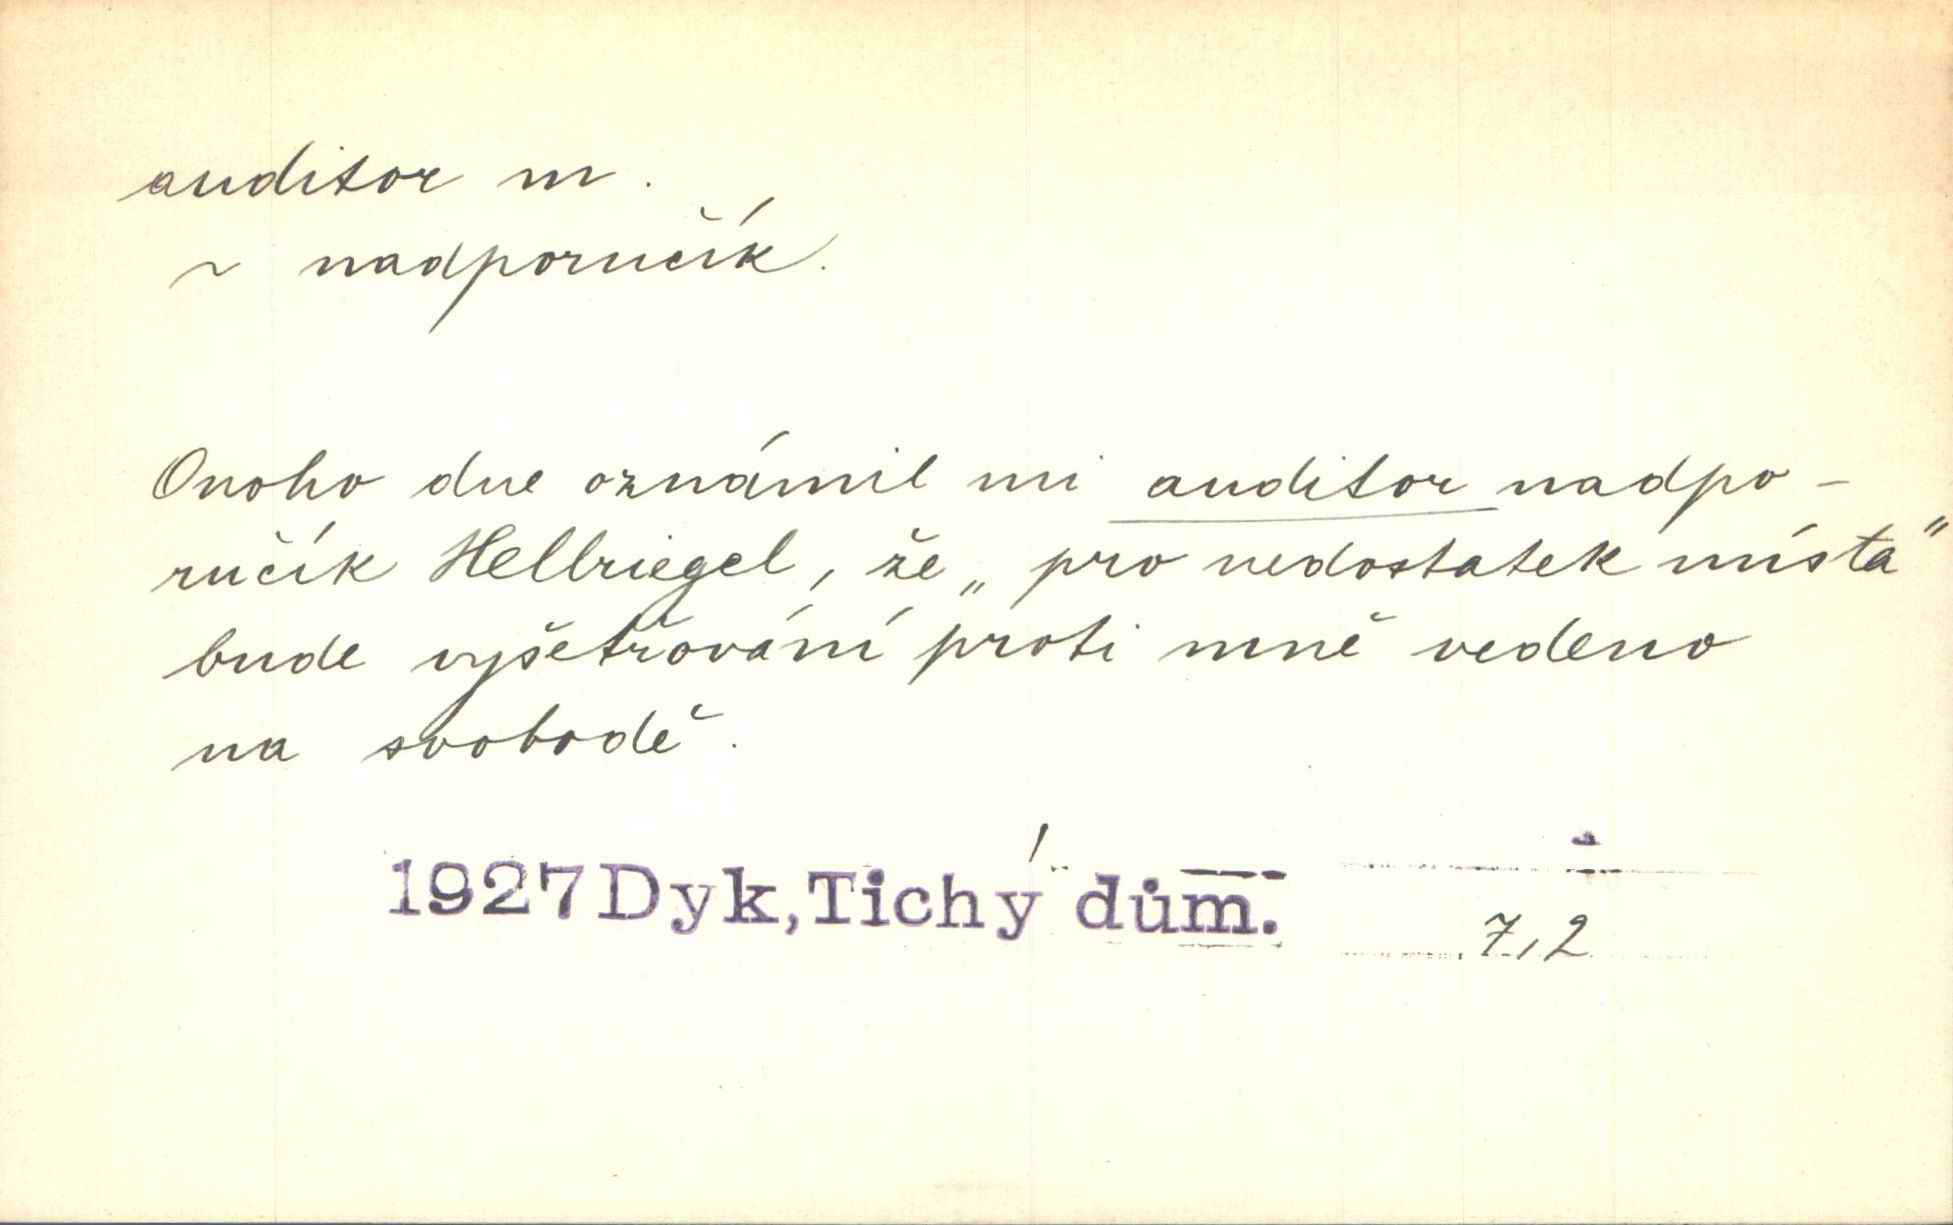 auditor m.
~ nadporučík.
Onoho dne oznámil mi auditor nadpo-
ručík Hellriegel, že „pro nedostatek místa"
bude vyšetřování proti mně vedeno
na svobodě.
1927 Dyk, Tichý dům. 7,2